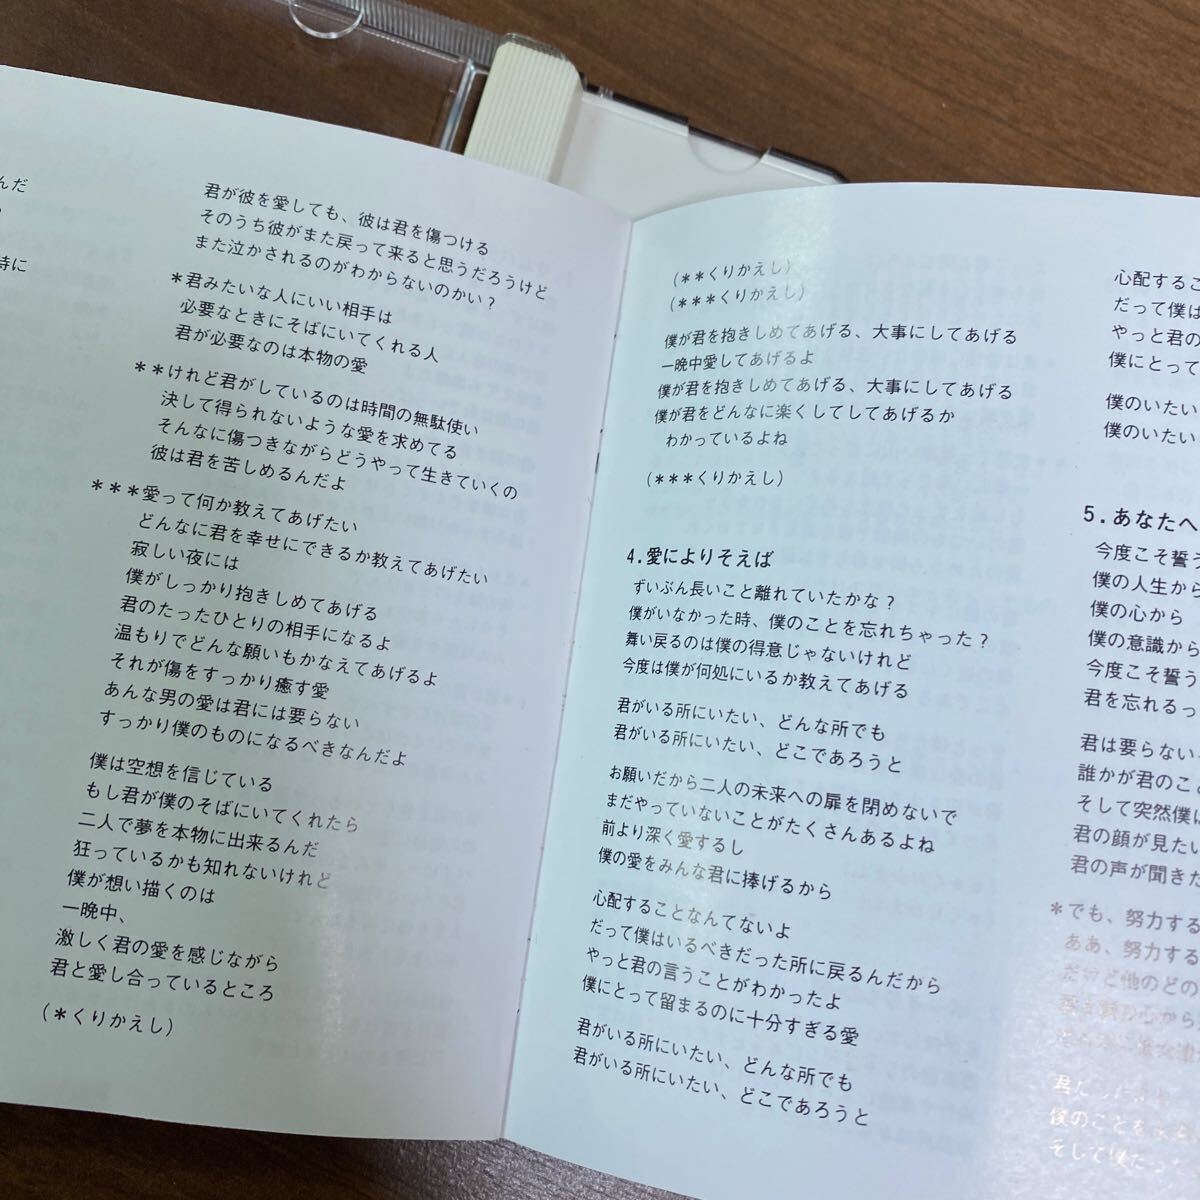 んだ
時に
君が彼を愛しても、彼は君を傷つける
そのうち彼がまた戻って来ると思うだろうけど
また泣かされるのがわからないのかい？
＊君みたいな人にいい相手は
必要なときにそばにいてくれる人
君が必要なのは本物の愛
＊＊けれど君がしているのは時間の無駄使い
決して得られないような愛を求めてる
そんなに傷つきながらどうやって生きていくの
彼は君を苦しめるんだよ
＊＊＊愛って何か教えてあげたい
どんなに君を幸せにできるか教えてあげたい
寂しい夜には
僕がしっかり抱きしめてあげる
君のたったひとりの相手になるよ
温もりでどんな願いもかなえてあげるよ
それが傷をすっかり癒す愛
あんな男の愛は君には要らない
すっかり僕のものになるべきなんだよ
僕は空想を信じている
もし君が僕のそばにいてくれたら
二人で夢を本物に出来るんだ
狂っているかも知れないけれど
僕が想い描くのは
一晩中、
激しく君の愛を感じながら
君と愛し合っているところ
(＊くりかえし)
(＊＊くりかえし)
(＊＊＊くりかえし)
僕が君を抱きしめてあげる、大事にしてあげる
一晩中愛してあげるよ
僕が君を抱きしめてあげる、大事にしてあげる
僕が君をどんなに楽くしてしてあげるか
わかっているよね
(＊＊＊くりかえし)
4.愛によりそえば
ずいぶん長いこと離れていたかな？
僕がいなかった時、僕のことを忘れちゃった？
舞い戻るのは僕の得意じゃないけれど
今度は僕が何処にいるか教えてあげる
君がいる所にいたい、どんな所でも
君がいる所にいたい、どこであろうと
お願いだから二人の未来への扉を閉めないで
まだやっていないことがたくさんあるよね
前より深く愛するし
僕の愛をみんな君に捧げるから
心配することなんてないよ
だって僕はいるべきだった所に戻るんだから
やっと君の言うことがわかったよ
僕にとって留まるのに十分すぎる愛
君がいる所にいたい、どんな所でも
君がいる所にいたい、どこであろうと
心配するこ
だって僕は
やっと君の
僕にとって
僕のいたい
僕のいたい
5.あなたへ
今度こそ誓う
僕の人生から
僕の心から
僕の意識から
今度こそ誓う
君を忘れるっ
君は要らない
誰かが君のこと
そして突然僕に
君の顔が見たい
君の声が聞きた
＊でも、努力する
ああ、努力する
だけど他のどの
僕のことを
そして僕だって